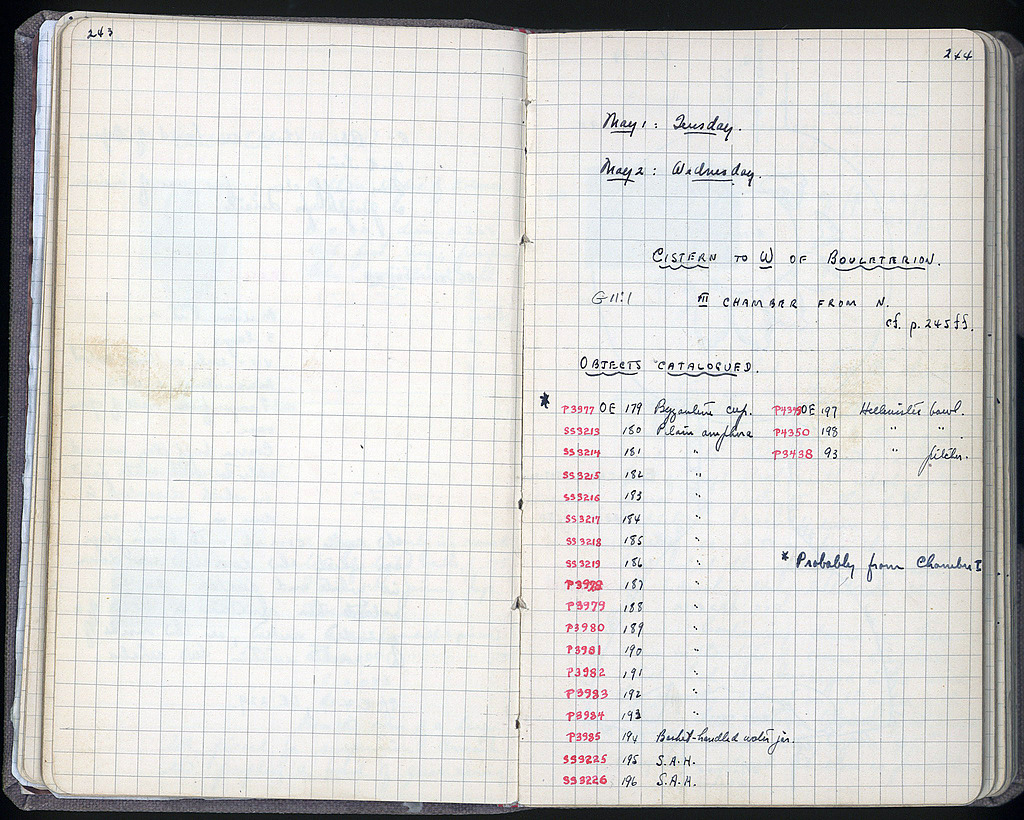 243
244
May 1: Tuesday.
May 2: Wednesday.
CISTERN TO W OF BOULETERION.
G 11:1 III CHAMBER FROM N.
cf. p. 245ff.
OBJECTS CATALOGUED.
* P3977 OE 179 Byzantine cup. OE 197 Hellenistic bowl.
SS3213 180 Plain amphora P4350 198 " ".
SS3214 181 " P3438 93 " pitcher.
SS3215 182 "
SS3216 183 "
SS3217 184 "
SS3218 185 "
SS3219 186 " * Probably from Chamber I
P3978 187 "
P3979 188 "
P3980 189 "
P3981 190 "
P3982 191 "
P3983 192 "
P3984 193 "
P3985 194 Basket-handled water jar.
SS3225 195 S.A.H.
SS3226 196 S.A.H.